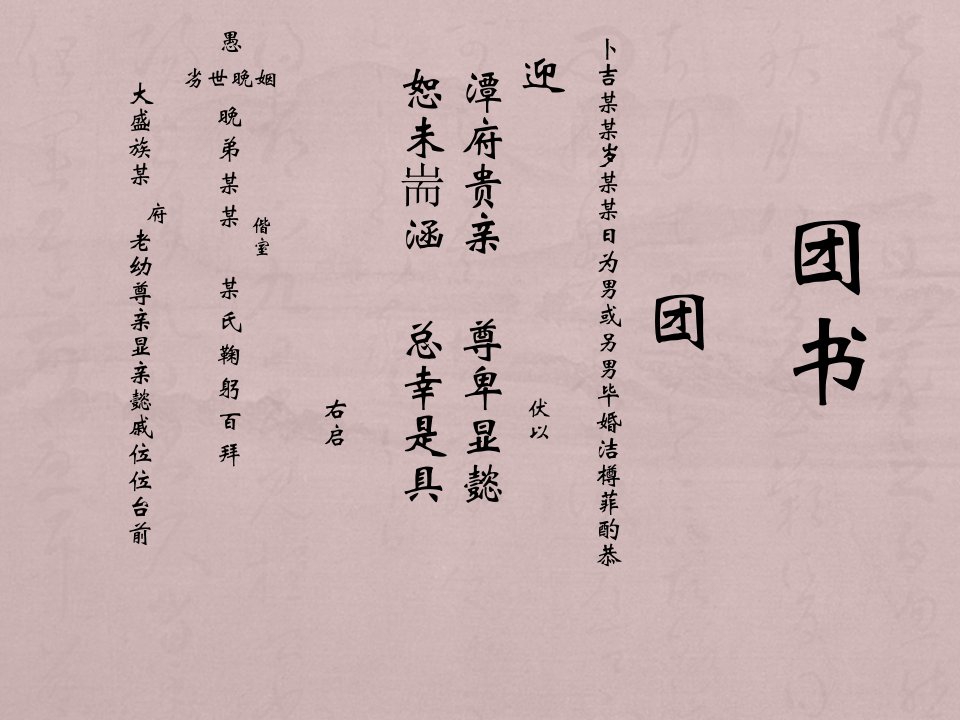 团书
团
卜吉某某岁某某日为男或另男毕婚洁樽菲酌恭
迎
伏以
潭府贵亲 尊卑显懿
恕未耑涵 总幸是具
右启
愚
劣世晚姻
晚弟某某 偕室 某氏鞠躬百拜
大盛族某府老幼尊亲显亲懿戚位位台前